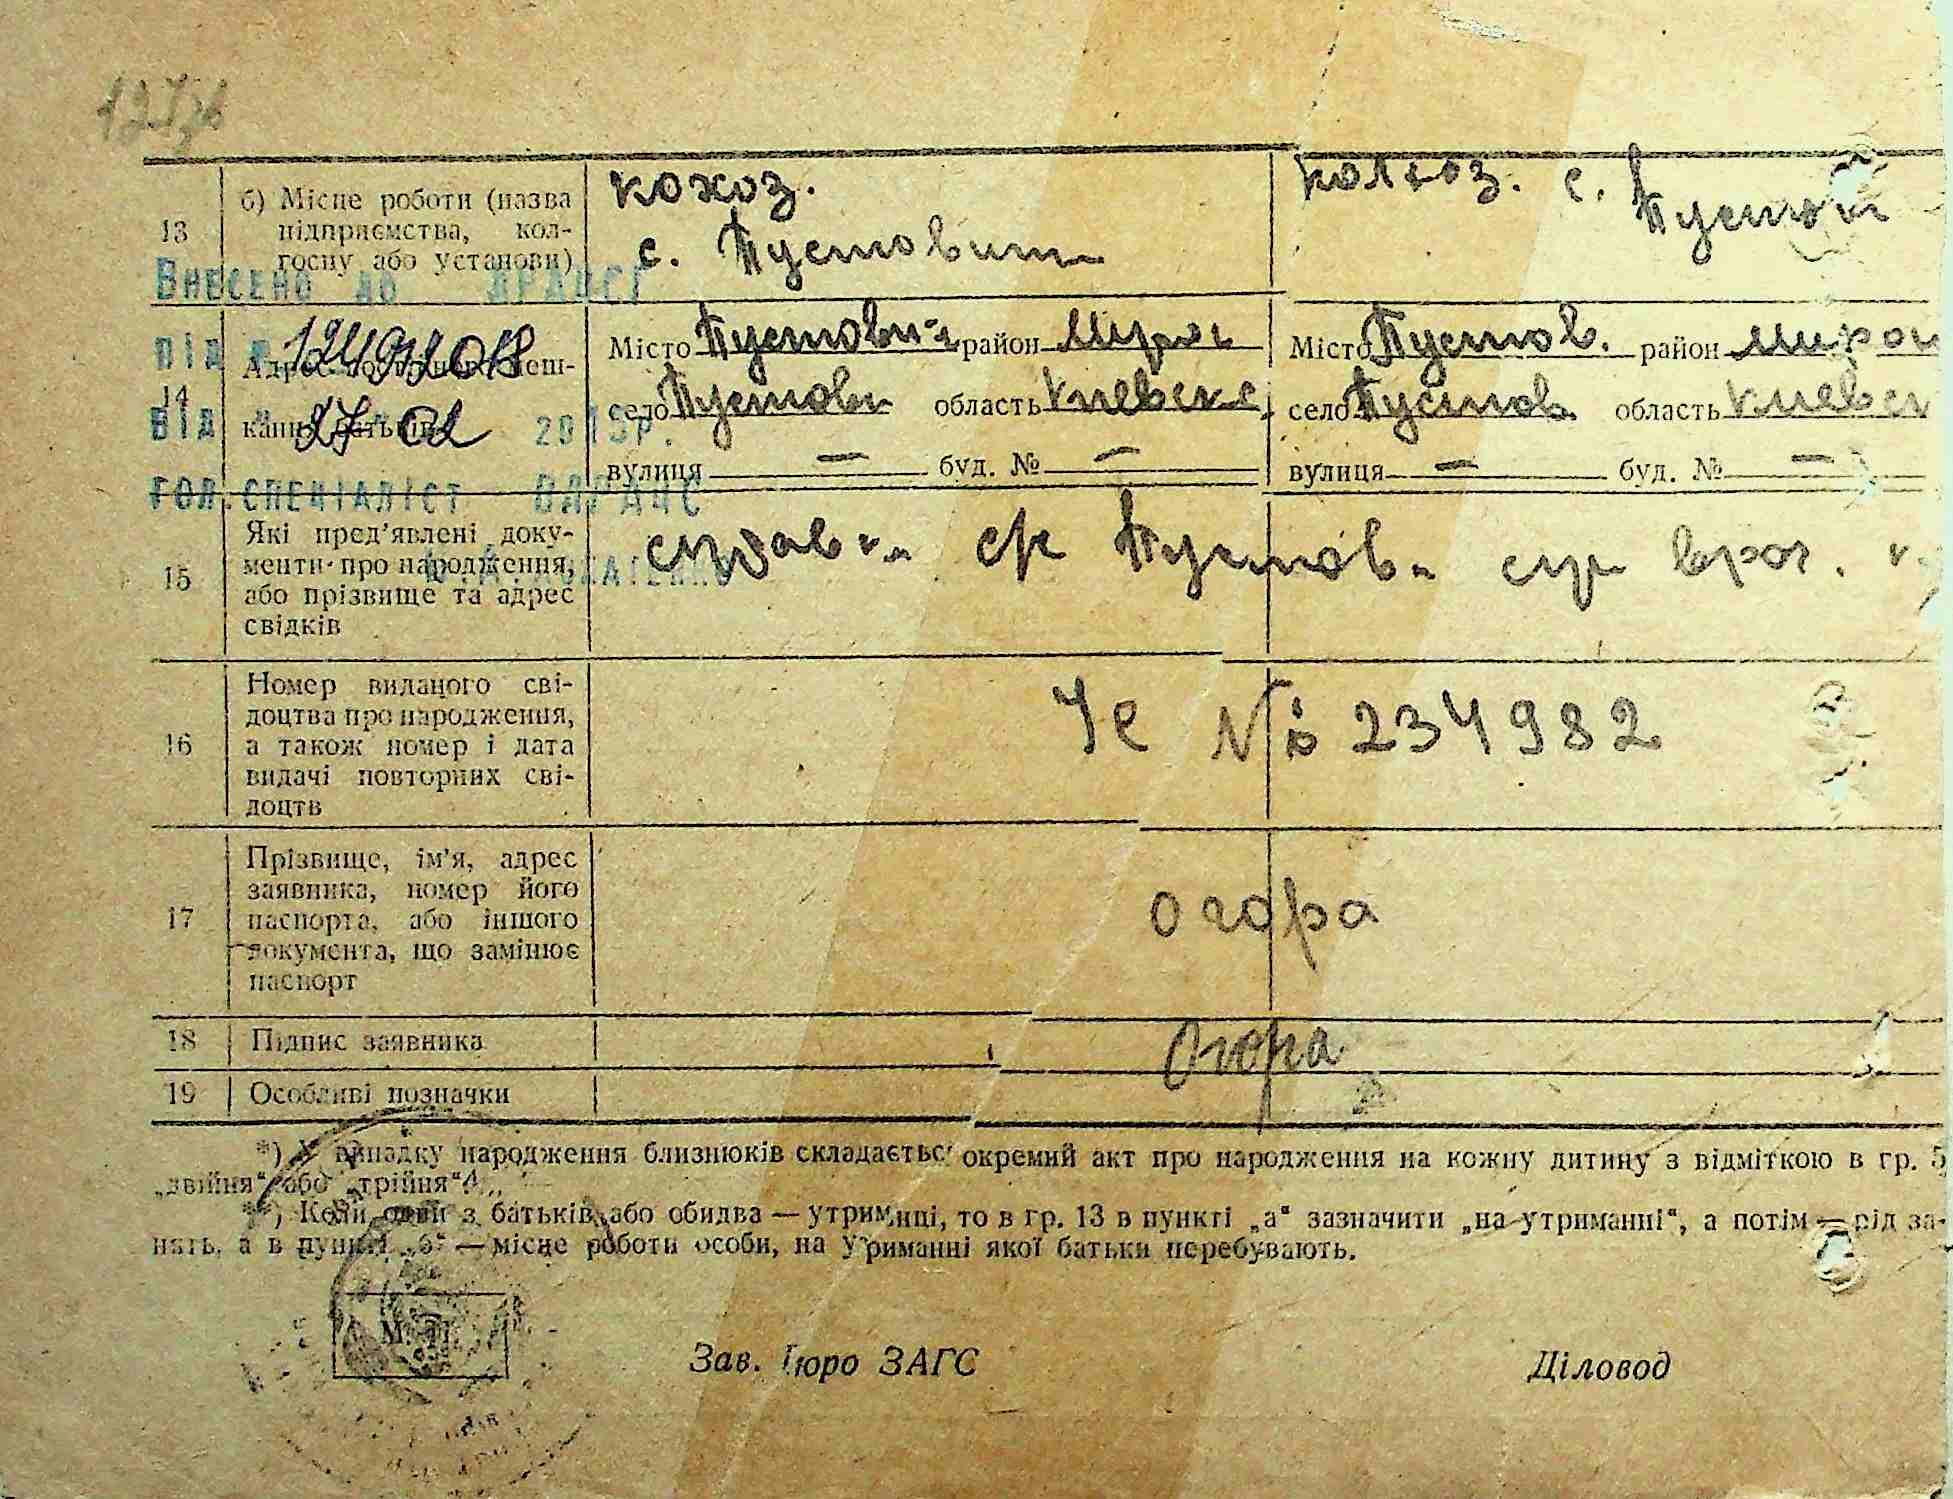 127
13
б) Місце роботи (назва
підприємства, кол-
госпу або установи)
кохоз.
с. Пустовит
колхоз. с.
Внесено до ДРАЦСГ
під
14
Адрес постійного меш-
кання батьків
від 27 02 2013р.
Місто Пустови район Мирон
село Пустови область Киевск.
вулиця — буд. № —
Місто Пустов. район Мирон
село Пустов область Киевск
вулиця — буд. № —
Гол.спеціаліст
15
Які пред'явлені доку-
менти про народження,
або прізвище та адрес
свідків
справка ср Пустов. спр врач.
16
Номер виданого сві-
доцтва про народження,
а також номер і дата
видачі повторних сві-
доцтв
№ 234982
17
Прізвище, ім'я, адрес
заявника, номер його
паспорта, або іншого
документа, що замінює
паспорт
огора
18
Підпис заявника
Огора
19
Особливі позначки
*) У випадку народження близнюків складається окремий акт про народження на кожну дитину з відміткою в гр. 5
„двійня“ або „трійня“.
**) Коли один з батьків або обидва — утриманці, то в гр. 13 в пункті „а“ зазначити „на утриманні“, а потім — рід за-
нять, а в пункті „б“ — місце роботи особи, на утриманні якої батьки перебувають.
М. П.
Зав. Бюро ЗАГС
Діловод